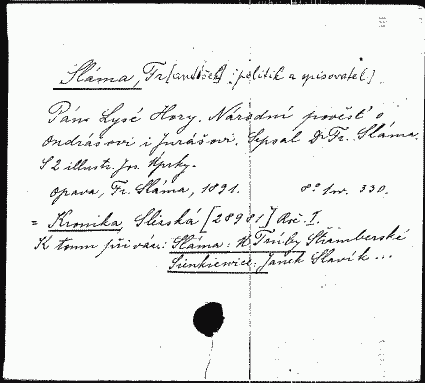 Sláma, Fr[antišek] [politik a spisovatel]
Páni Lysé Hory. Národní pověsť o
Ondrášovi i Jurášovi. Sepsal Dr Fr. Sláma.
S 2 illustr. Jos. Úprky.
Opava, Fr. Sláma, 1891. 8° 1sv. 330.
= Kronika Slezská [28981] Roč. I.
K tomu přiváz.: Sláma: Z Trúby Štramberské
Sienkiewicz: Janek Slavík ...